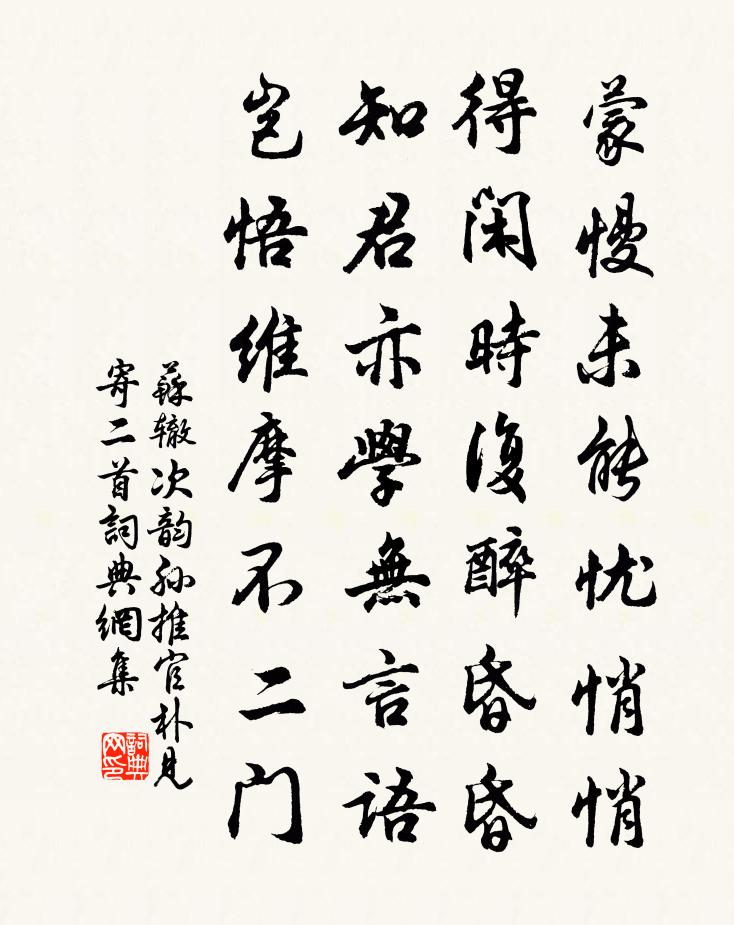 蒙慢未能忧悄悄
得闲時復醉昏昏
知君亦學無言語
岂悟维摩不二门
蘇辙次韵孙推官朴見
寄二首詞典網集
詞典网印